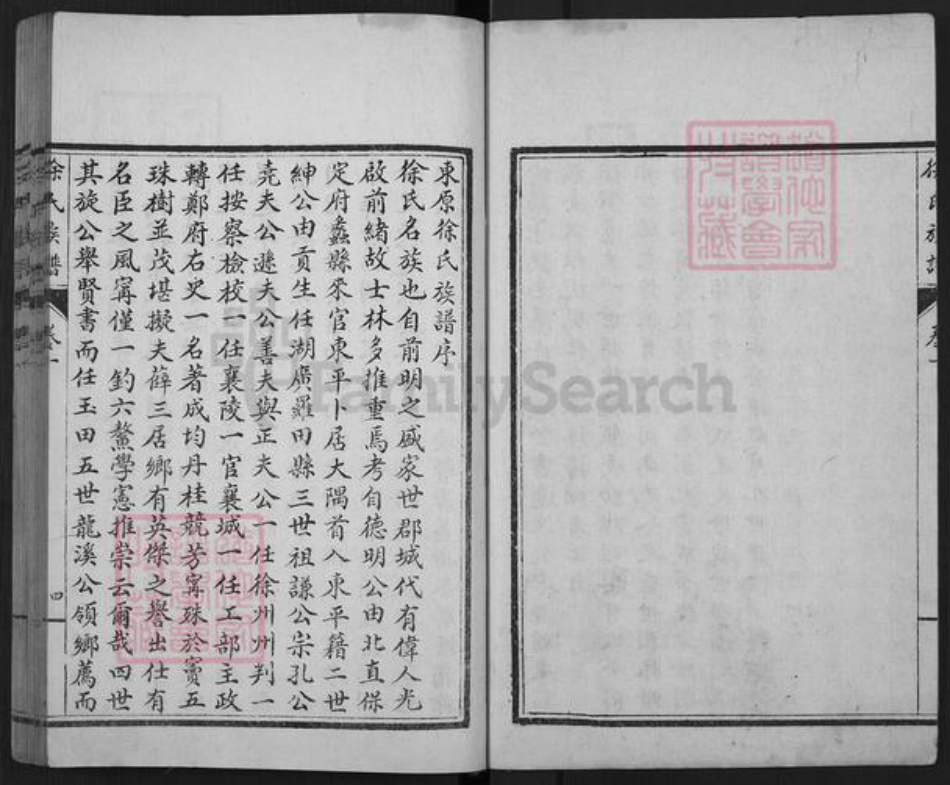 東原徐氏族譜序
徐氏名族也自前明之盛家世郡城代有偉人光
啟前緒故士林多推重焉考自德明公由北直保
定府蠡縣來官東平卜居大隅首入東平籍二世
紳公由貢生任湖廣羅田縣三世祖謙公宗孔公
堯夫公遜夫公善夫與正夫公一任徐州州判一
任按察檢校一任襄陵一官襄城一任工部主政
轉鄭府右史一名著成均丹桂競芳甯殊於竇五
珠樹並茂堪擬夫薛三居鄉有英傑之譽出仕有
名臣之風甯僅一釣六鰲學憲推崇云爾哉四世
其旋公舉賢書而任玉田五世龍溪公領鄉薦而
徐氏族譜 卷一
四
FamilySearch